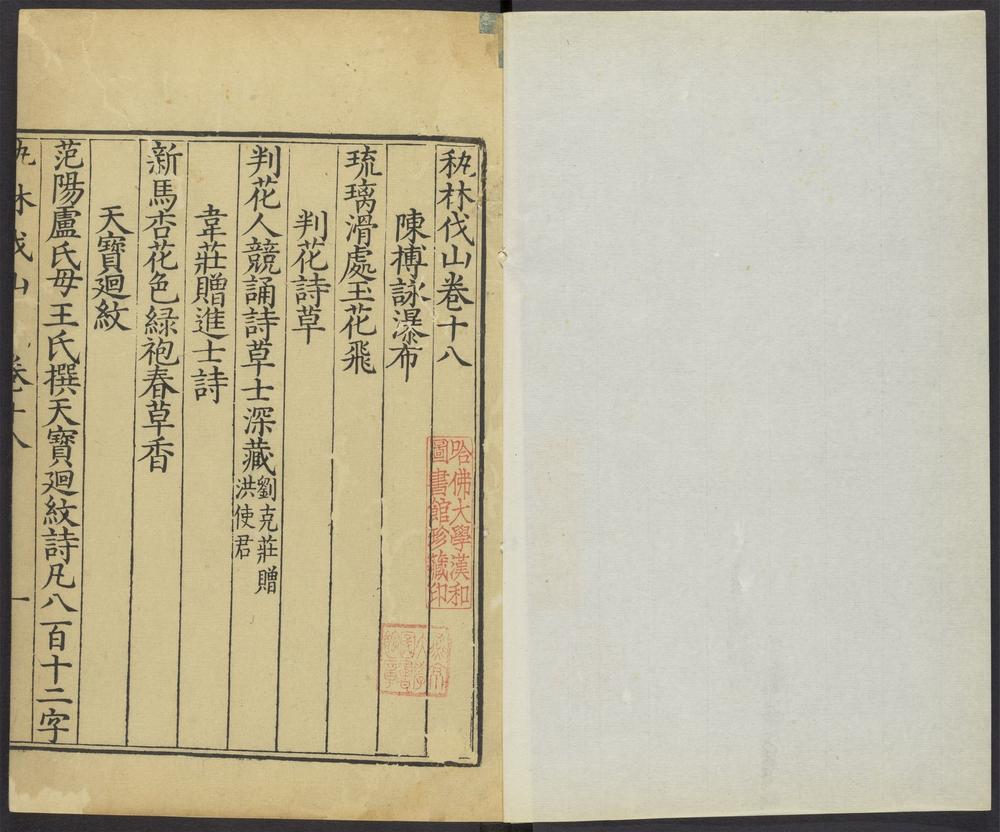 秇林伐山卷十八
陳摶詠瀑布
琉璃滑處玉花飛
判花詩草
判花人競誦詩草士深藏劉克莊贈洪使君
韋莊贈進士詩
新馬杏花色綠袍春草香
天寶廻紋
范陽盧氏母王氏撰天寶廻紋詩凡八百十二字
秇林伐山 卷十八 一
哈佛大學漢和
圖書館珍藏印